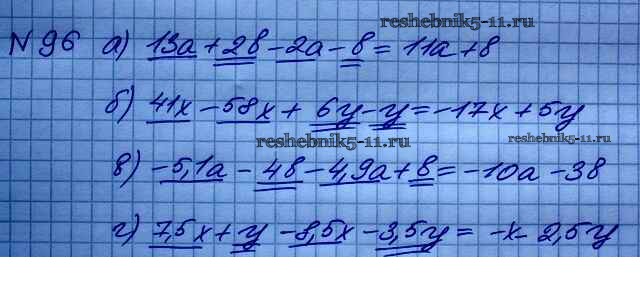 reshebnik5-11.ru
№96 а) 13a + 2b - 2a - b = 11a + b
б) 41x - 58x + 6y - y = -17x + 5y
reshebnik5-11.ru
reshebnik5-11.ru
в) -5,1a - 4b - 4,9a + b = -10a - 3b
г) 7,5x + y - 8,5x - 3,5y = -x - 2,5y